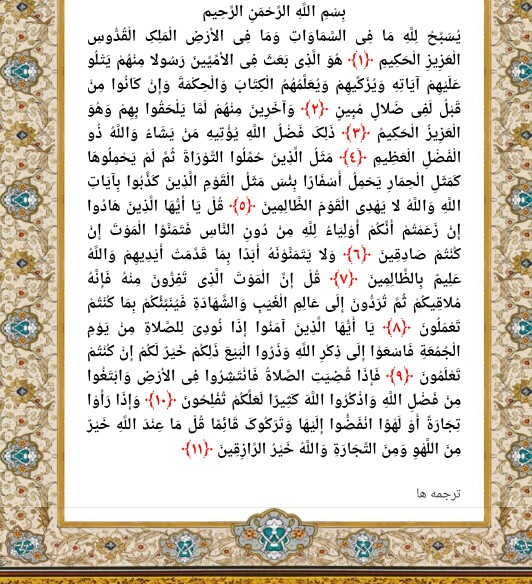 بِسْمِ اللَّهِ الرَّحْمَنِ الرَّحِيم
يُسَبِّحُ لِلَّهِ مَا فِى السَّمَاوَاتِ وَمَا فِى الأرْضِ الْمَلِكِ الْقُدُّوسِ
الْعَزِيزِ الْحَكِيمِ ﴿١﴾ هُوَ الَّذِى بَعَثَ فِى الأمِّيِّينَ رَسُولا مِنْهُمْ يَتْلُو
عَلَيْهِمْ آيَاتِهِ وَيُزَكِّيهِمْ وَيُعَلِّمُهُمُ الْكِتَابَ وَالْحِكْمَةَ وَإِنْ كَانُوا مِنْ
قَبْلُ لَفِى ضَلالٍ مُبِينٍ ﴿٢﴾ وَآخَرِينَ مِنْهُمْ لَمَّا يَلْحَقُوا بِهِمْ وَهُوَ
الْعَزِيزُ الْحَكِيمُ ﴿٣﴾ ذَلِكَ فَضْلُ اللَّهِ يُؤْتِيهِ مَنْ يَشَاءُ وَاللَّهُ ذُو
الْفَضْلِ الْعَظِيمِ ﴿٤﴾ مَثَلُ الَّذِينَ حُمِّلُوا التَّوْرَاةَ ثُمَّ لَمْ يَحْمِلُوهَا
كَمَثَلِ الْحِمَارِ يَحْمِلُ أَسْفَارًا بِئْسَ مَثَلُ الْقَوْمِ الَّذِينَ كَذَّبُوا بِآيَاتِ
اللَّهِ وَاللَّهُ لا يَهْدِى الْقَوْمَ الظَّالِمِينَ ﴿٥﴾ قُلْ يَا أَيُّهَا الَّذِينَ هَادُوا
إِنْ زَعَمْتُمْ أَنَّكُمْ أَوْلِيَاءُ لِلَّهِ مِنْ دُونِ النَّاسِ فَتَمَنَّوُا الْمَوْتَ إِنْ
كُنْتُمْ صَادِقِينَ ﴿٦﴾ وَلا يَتَمَنَّوْنَهُ أَبَدًا بِمَا قَدَّمَتْ أَيْدِيهِمْ وَاللَّهُ
عَلِيمٌ بِالظَّالِمِينَ ﴿٧﴾ قُلْ إِنَّ الْمَوْتَ الَّذِى تَفِرُّونَ مِنْهُ فَإِنَّهُ
مُلاقِيكُمْ ثُمَّ تُرَدُّونَ إِلَى عَالِمِ الْغَيْبِ وَالشَّهَادَةِ فَيُنَبِّئُكُمْ بِمَا كُنْتُمْ
تَعْمَلُونَ ﴿٨﴾ يَا أَيُّهَا الَّذِينَ آمَنُوا إِذَا نُودِىَ لِلصَّلاةِ مِنْ يَوْمِ
الْجُمُعَةِ فَاسْعَوْا إِلَى ذِكْرِ اللَّهِ وَذَرُوا الْبَيْعَ ذَلِكُمْ خَيْرٌ لَكُمْ إِنْ كُنْتُمْ
تَعْلَمُونَ ﴿٩﴾ فَإِذَا قُضِيَتِ الصَّلاةُ فَانْتَشِرُوا فِى الأرْضِ وَابْتَغُوا
مِنْ فَضْلِ اللَّهِ وَاذْكُرُوا اللَّهَ كَثِيرًا لَعَلَّكُمْ تُفْلِحُونَ ﴿١٠﴾ وَإِذَا رَأَوْا
تِجَارَةً أَوْ لَهْوًا انْفَضُّوا إِلَيْهَا وَتَرَكُوكَ قَائِمًا قُلْ مَا عِنْدَ اللَّهِ خَيْرٌ
مِنَ اللَّهْوِ وَمِنَ التِّجَارَةِ وَاللَّهُ خَيْرُ الرَّازِقِينَ ﴿١١﴾
ترجمه ها